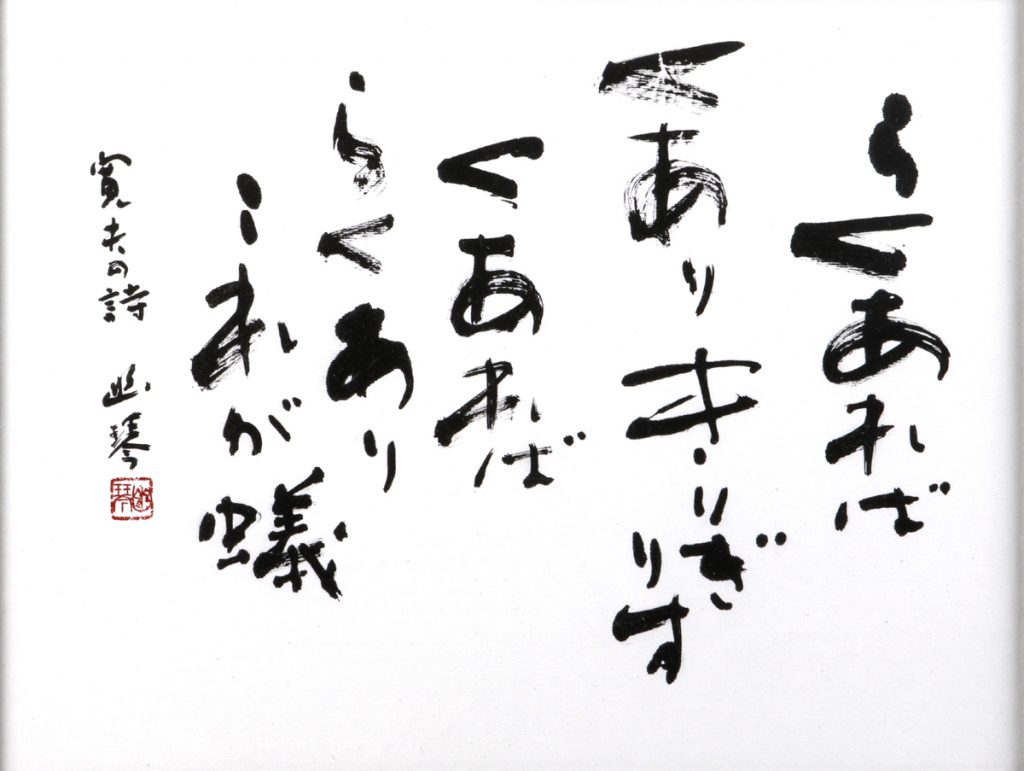 らくあれば
くありきりぎりす
くあれば
らくあり
これが蟻
寛夫の詩 幽琴
幽琴